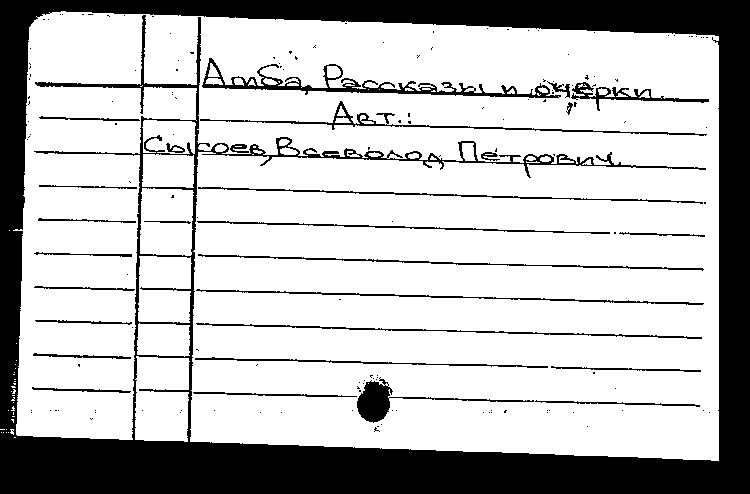 Амба, Рассказы и очерки.
Авт.:
Сысоев, Всеволод Петрович.